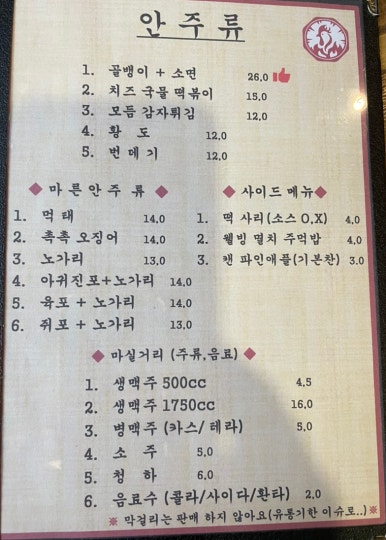 안 주 류
1. 골뱅이 + 소면 26,0
2. 치즈 국물 떡볶이 15,0
3. 모듬 감자튀김 12,0
4. 황 도 12,0
5. 번 데 기 12,0
마 른 안 주 류
1. 먹 태 14,0
2. 촉촉 오징어 14,0
3. 노가리 13,0
4. 아귀진포+노가리 14,0
5. 육포 + 노가리 14,0
6. 쥐포 + 노가리 13,0
사 이 드 메 뉴
1. 떡 사리(소스 O,X) 4,0
2. 웰빙 멸치 주먹밥 4,0
3. 캔 파인애플(기본찬) 3,0
마실거리 (주류,음료)
1. 생맥주 500cc 4,5
2. 생맥주 1750cc 16,0
3. 병맥주 (카스/ 테라) 5,0
4. 소 주 5,0
5. 청 하 6,0
6. 음료수 (콜라/사이다/환타) 2,0
※ 막걸리는 판매 하지 않아요(유통기한 이슈로..) ※